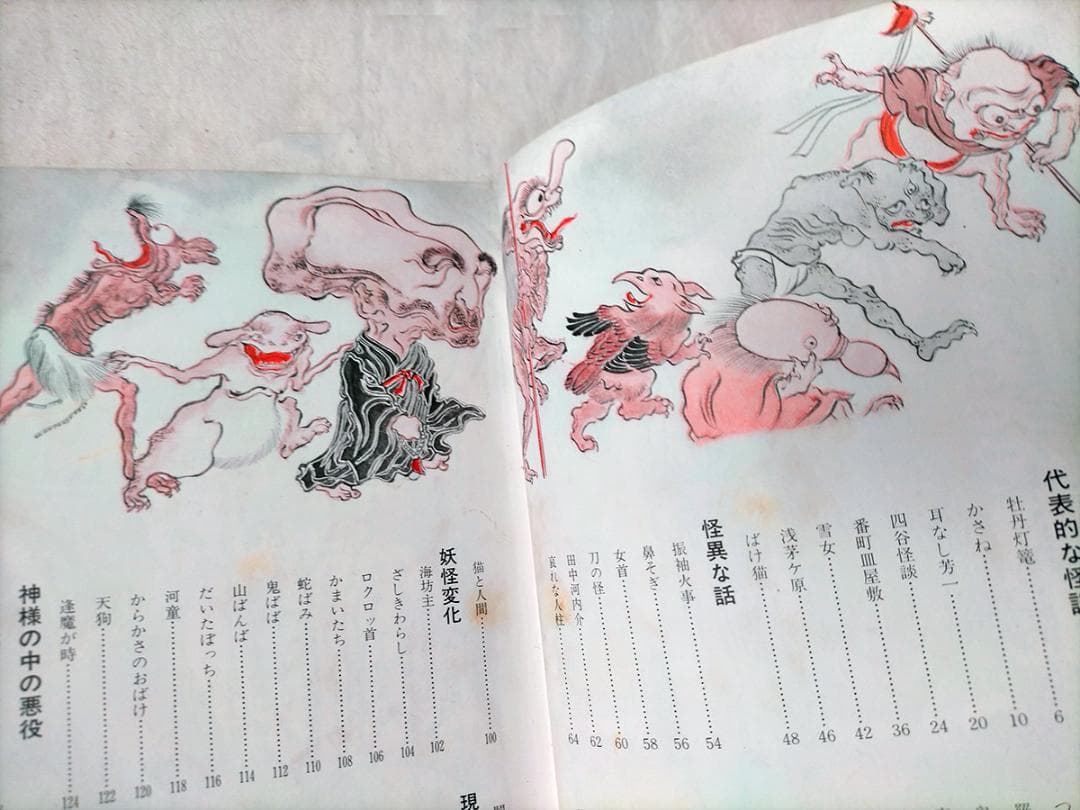 代表的な怪談
牡丹灯籠……………6
かさね……………10
耳なし芳一……………20
四谷怪談……………24
番町皿屋敷……………36
雪女……………42
浅茅ケ原……………46
ばけ猫……………48
怪異な話
振袖火事……………54
鼻そぎ……………56
女首……………58
刀の怪……………60
田中河内介……………62
哀れな人柱……………64
猫と人間……………100
妖怪変化
海坊主……………102
ざしきわらし……………104
ロクロッ首……………106
かまいたち……………108
蛇ばみ……………110
鬼ばば……………112
山ばんば……………114
だいたぼっち……………116
河童……………118
からかさのおばけ……………120
天狗……………122
逢魔が時……………124
神様の中の悪役
現